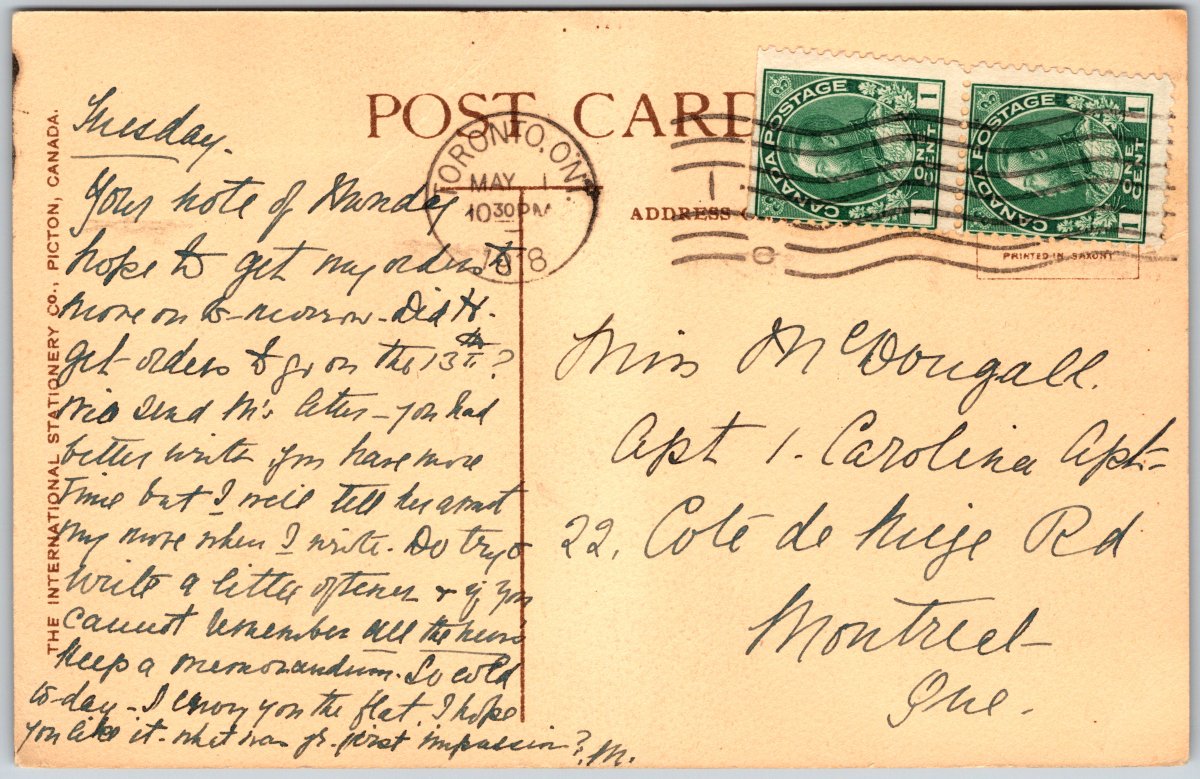 POST CARD
TORONTO, ONT.
MAY 1
10 30 PM
1918
CANADA POSTAGE
ONE CENT
1 1
CANADA POSTAGE
ONE CENT
1 1
ADDRESS
PRINTED IN SAXONY
THE INTERNATIONAL STATIONERY CO., PICTON, CANADA.
Tuesday.
Your note of Sunday
hope to get my orders to
move on to-morrow. Did H.
get orders to go on the 13th?
Will send M's letter - you had
better write if you have more
time but I will tell her about
my move when I write. Do try to
write a little oftener & if you
cannot remember all the news
keep a memorandum. So cold
to-day - I envy you the flat. I hope
you like it. what was yr. first impression? M.
Miss McDougall.
Apt 1. Carolina Apt-
22, Coté de Neige Rd
Montreal-
Que.